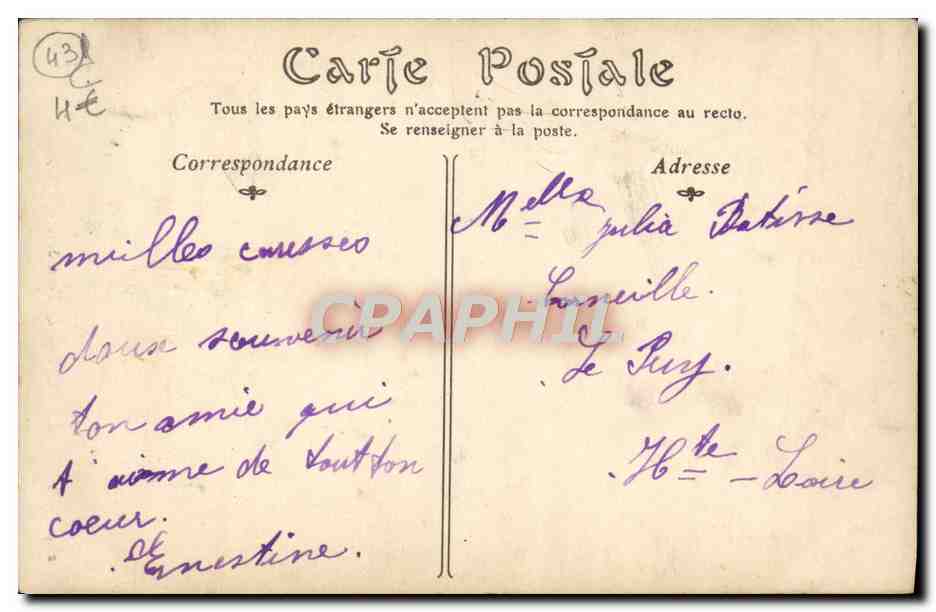 43
4€
Carte Postale
Tous les pays étrangers n'acceptent pas la correspondance au recto.
Se renseigner à la poste.
Correspondance
milles caresses
doux souvenir
ton amie qui
t aime de tout ton
coeur.
Ernestine.
Adresse
Melle Julia Batisse
Le Puy.
Hte - Loire
CPAPHIL